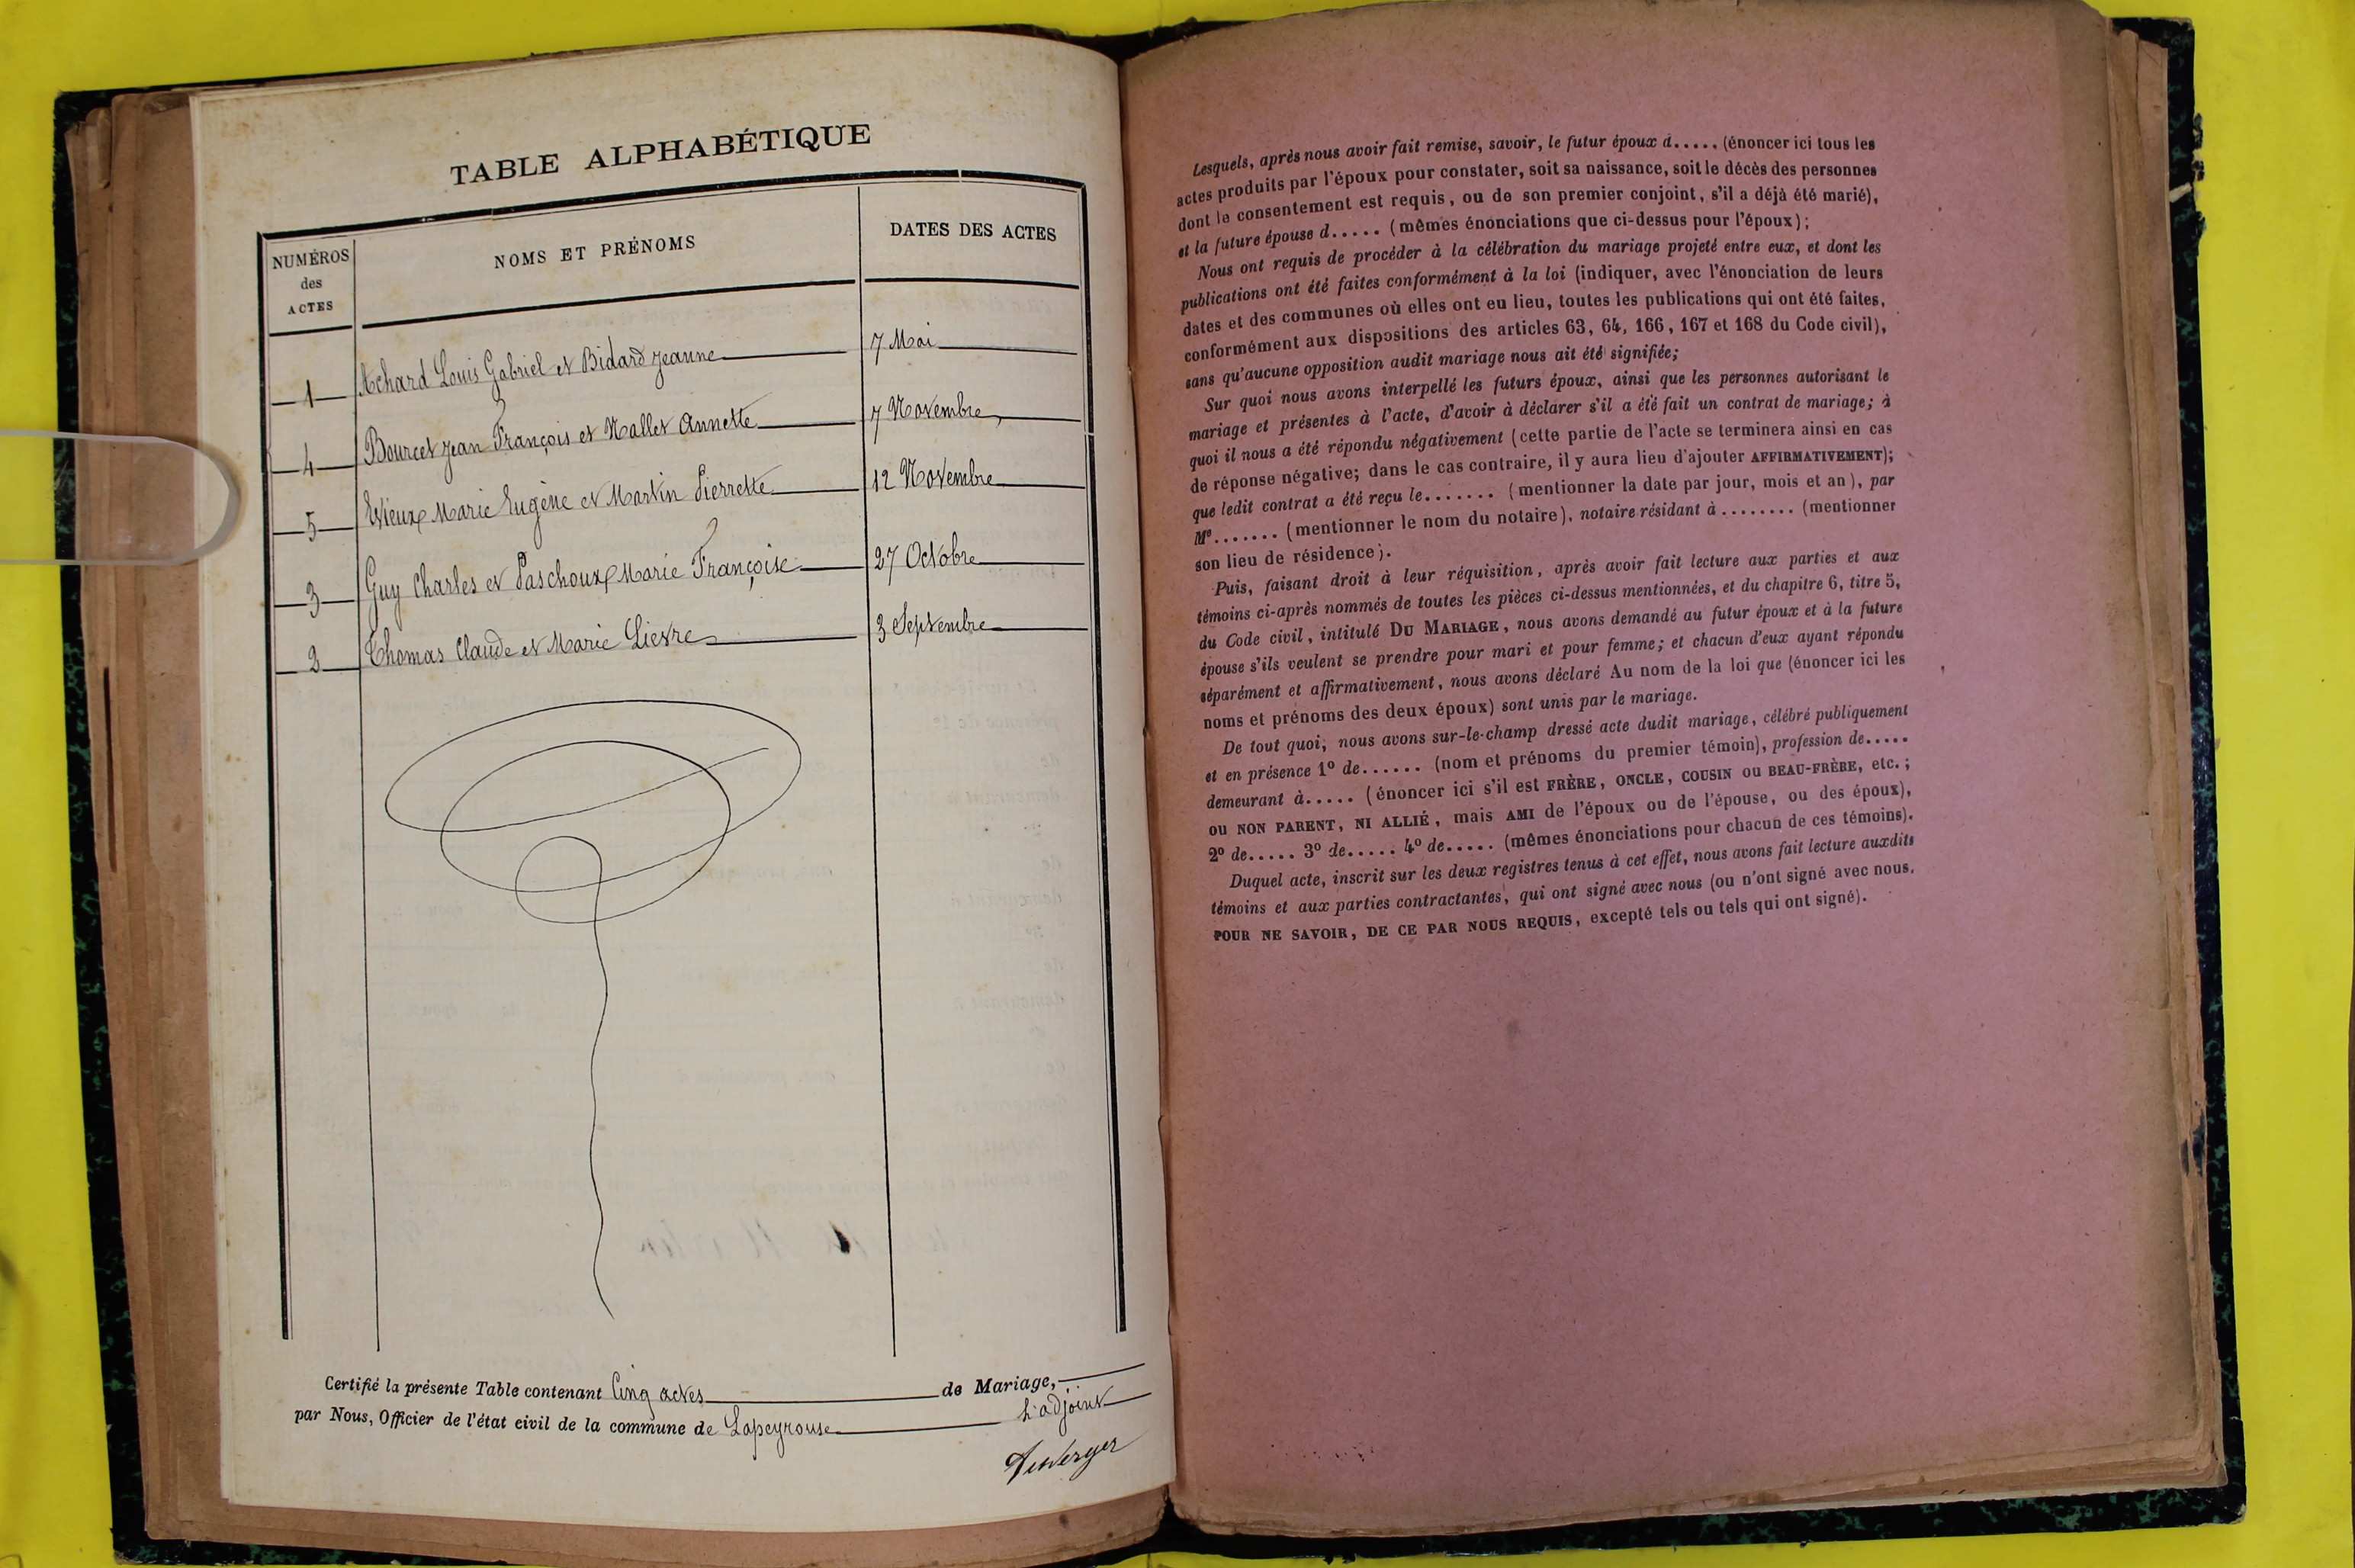 TABLE ALPHABÉTIQUE
NUMÉROS des ACTES
NOMS ET PRÉNOMS
DATES DES ACTES
1 Achard Louis Gabriel et Bidard Jeanne 7 Mai
4 Bourcet Jean François et Nallet Annette 7 Novembre
5 Evieux Marie Eugène et Martin Pierrette 12 Novembre
3 Guy Charles et Paschoux Marie Françoise 27 Octobre
2 Thomas Claude et Marie Lievre 3 Septembre
Certifié la présente Table contenant Cinq actes de Mariage,
par Nous, Officier de l'état civil de la commune de Lapeyrouse L'adjoint
Lesquels, après nous avoir fait remise, savoir, le futur époux d..... (énoncer ici tous les
actes produits par l'époux pour constater, soit sa naissance, soit le décès des personnes
dont le consentement est requis, ou de son premier conjoint, s'il a déjà été marié),
et la future épouse d..... (mêmes énonciations que ci-dessus pour l'époux);
Nous ont requis de procéder à la célébration du mariage projeté entre eux, et dont les
publications ont été faites conformément à la loi (indiquer, avec l'énonciation de leurs
dates et des communes où elles ont eu lieu, toutes les publications qui ont été faites,
conformément aux dispositions des articles 63, 64, 166, 167 et 168 du Code civil),
sans qu'aucune opposition audit mariage nous ait été signifiée;
Sur quoi nous avons interpellé les futurs époux, ainsi que les personnes autorisant le
mariage et présentes à l'acte, d'avoir à déclarer s'il a été fait un contrat de mariage; à
quoi il nous a été répondu négativement (cette partie de l'acte se terminera ainsi en cas
de réponse négative; dans le cas contraire, il y aura lieu d'ajouter AFFIRMATIVEMENT);
que ledit contrat a été reçu le....... (mentionner la date par jour, mois et an), par
Me....... (mentionner le nom du notaire), notaire résidant à ........ (mentionner
son lieu de résidence).
Puis, faisant droit à leur réquisition, après avoir fait lecture aux parties et aux
témoins ci-après nommés de toutes les pièces ci-dessus mentionnées, et du chapitre 6, titre 5,
du Code civil, intitulé DU MARIAGE, nous avons demandé au futur époux et à la future
épouse s'ils veulent se prendre pour mari et pour femme; et chacun d'eux ayant répondu
séparément et affirmativement, nous avons déclaré Au nom de la loi que (énoncer ici les
noms et prénoms des deux époux) sont unis par le mariage.
De tout quoi, nous avons sur-le-champ dressé acte dudit mariage, célébré publiquement
et en présence 1º de...... (nom et prénoms du premier témoin), profession de.....
demeurant à..... (énoncer ici s'il est FRÈRE, ONCLE, COUSIN ou BEAU-FRÈRE, etc.;
ou NON PARENT, NI ALLIÉ, mais AMI de l'époux ou de l'épouse, ou des époux),
2º de..... 3º de..... 4º de..... (mêmes énonciations pour chacun de ces témoins).
Duquel acte, inscrit sur les deux registres tenus à cet effet, nous avons fait lecture auxdits
témoins et aux parties contractantes, qui ont signé avec nous (ou n'ont signé avec nous,
POUR NE SAVOIR, DE CE PAR NOUS REQUIS, excepté tels ou tels qui ont signé).